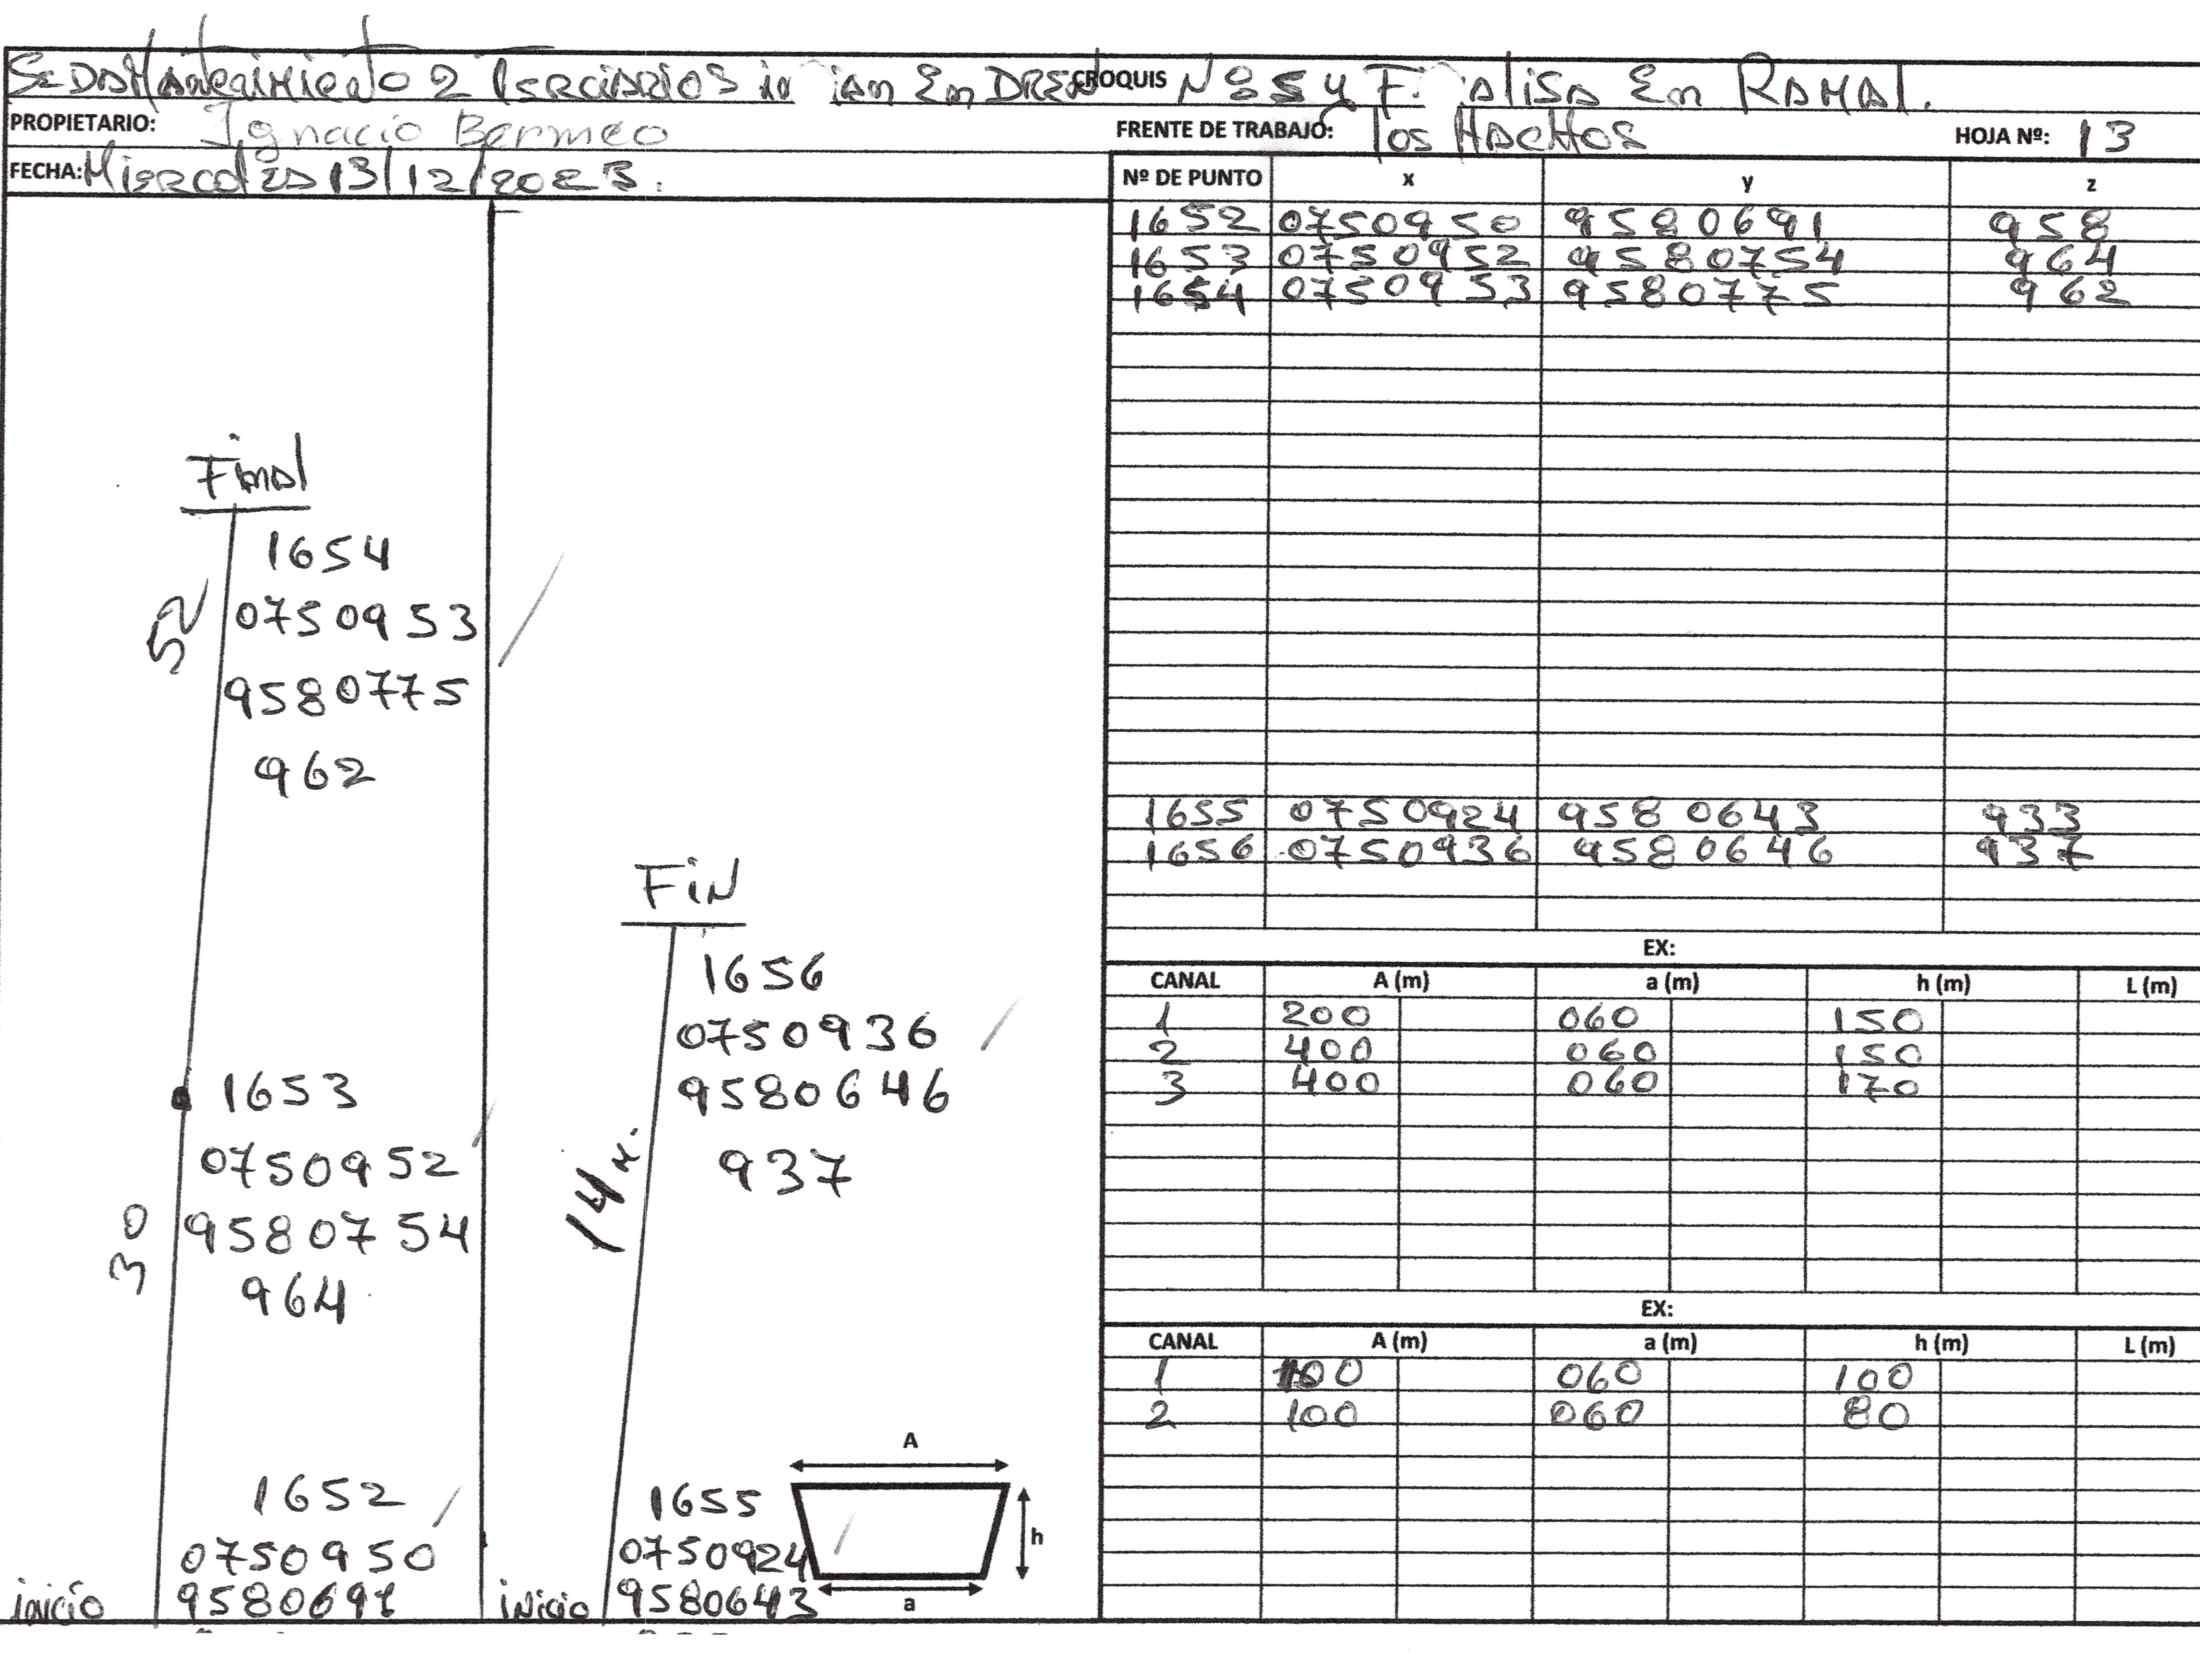 Se DA Mantenimiento 2 Terciarios in ian En DREN CROQUIS Nº 5 y Fi alisa En RAMAl.
PROPIETARIO: Ignacio Bermeo
FRENTE DE TRABAJO: los MACHOS
HOJA Nº: 13
FECHA: Miercoles 13/12/2023.
Nº DE PUNTO x y z
1652 0750950 9580691 958
1653 0750952 9580754 964
1654 0750953 9580775 962
1655 0750924 9580643 933
1656 0750936 9580646 937
EX:
CANAL A (m) a (m) h (m) L (m)
1 200 060 150
2 400 060 150
3 400 060 170
EX:
CANAL A (m) a (m) h (m) L (m)
1 100 060 100
2 100 060 80
Final
1654
0750953
9580775
962
52
1653
0750952
9580754
964
30
1652
0750950
inicio 9580691
FiN
1656
0750936
9580646
937
14 M.
1655
0750924
inicio 9580643
A
h
a